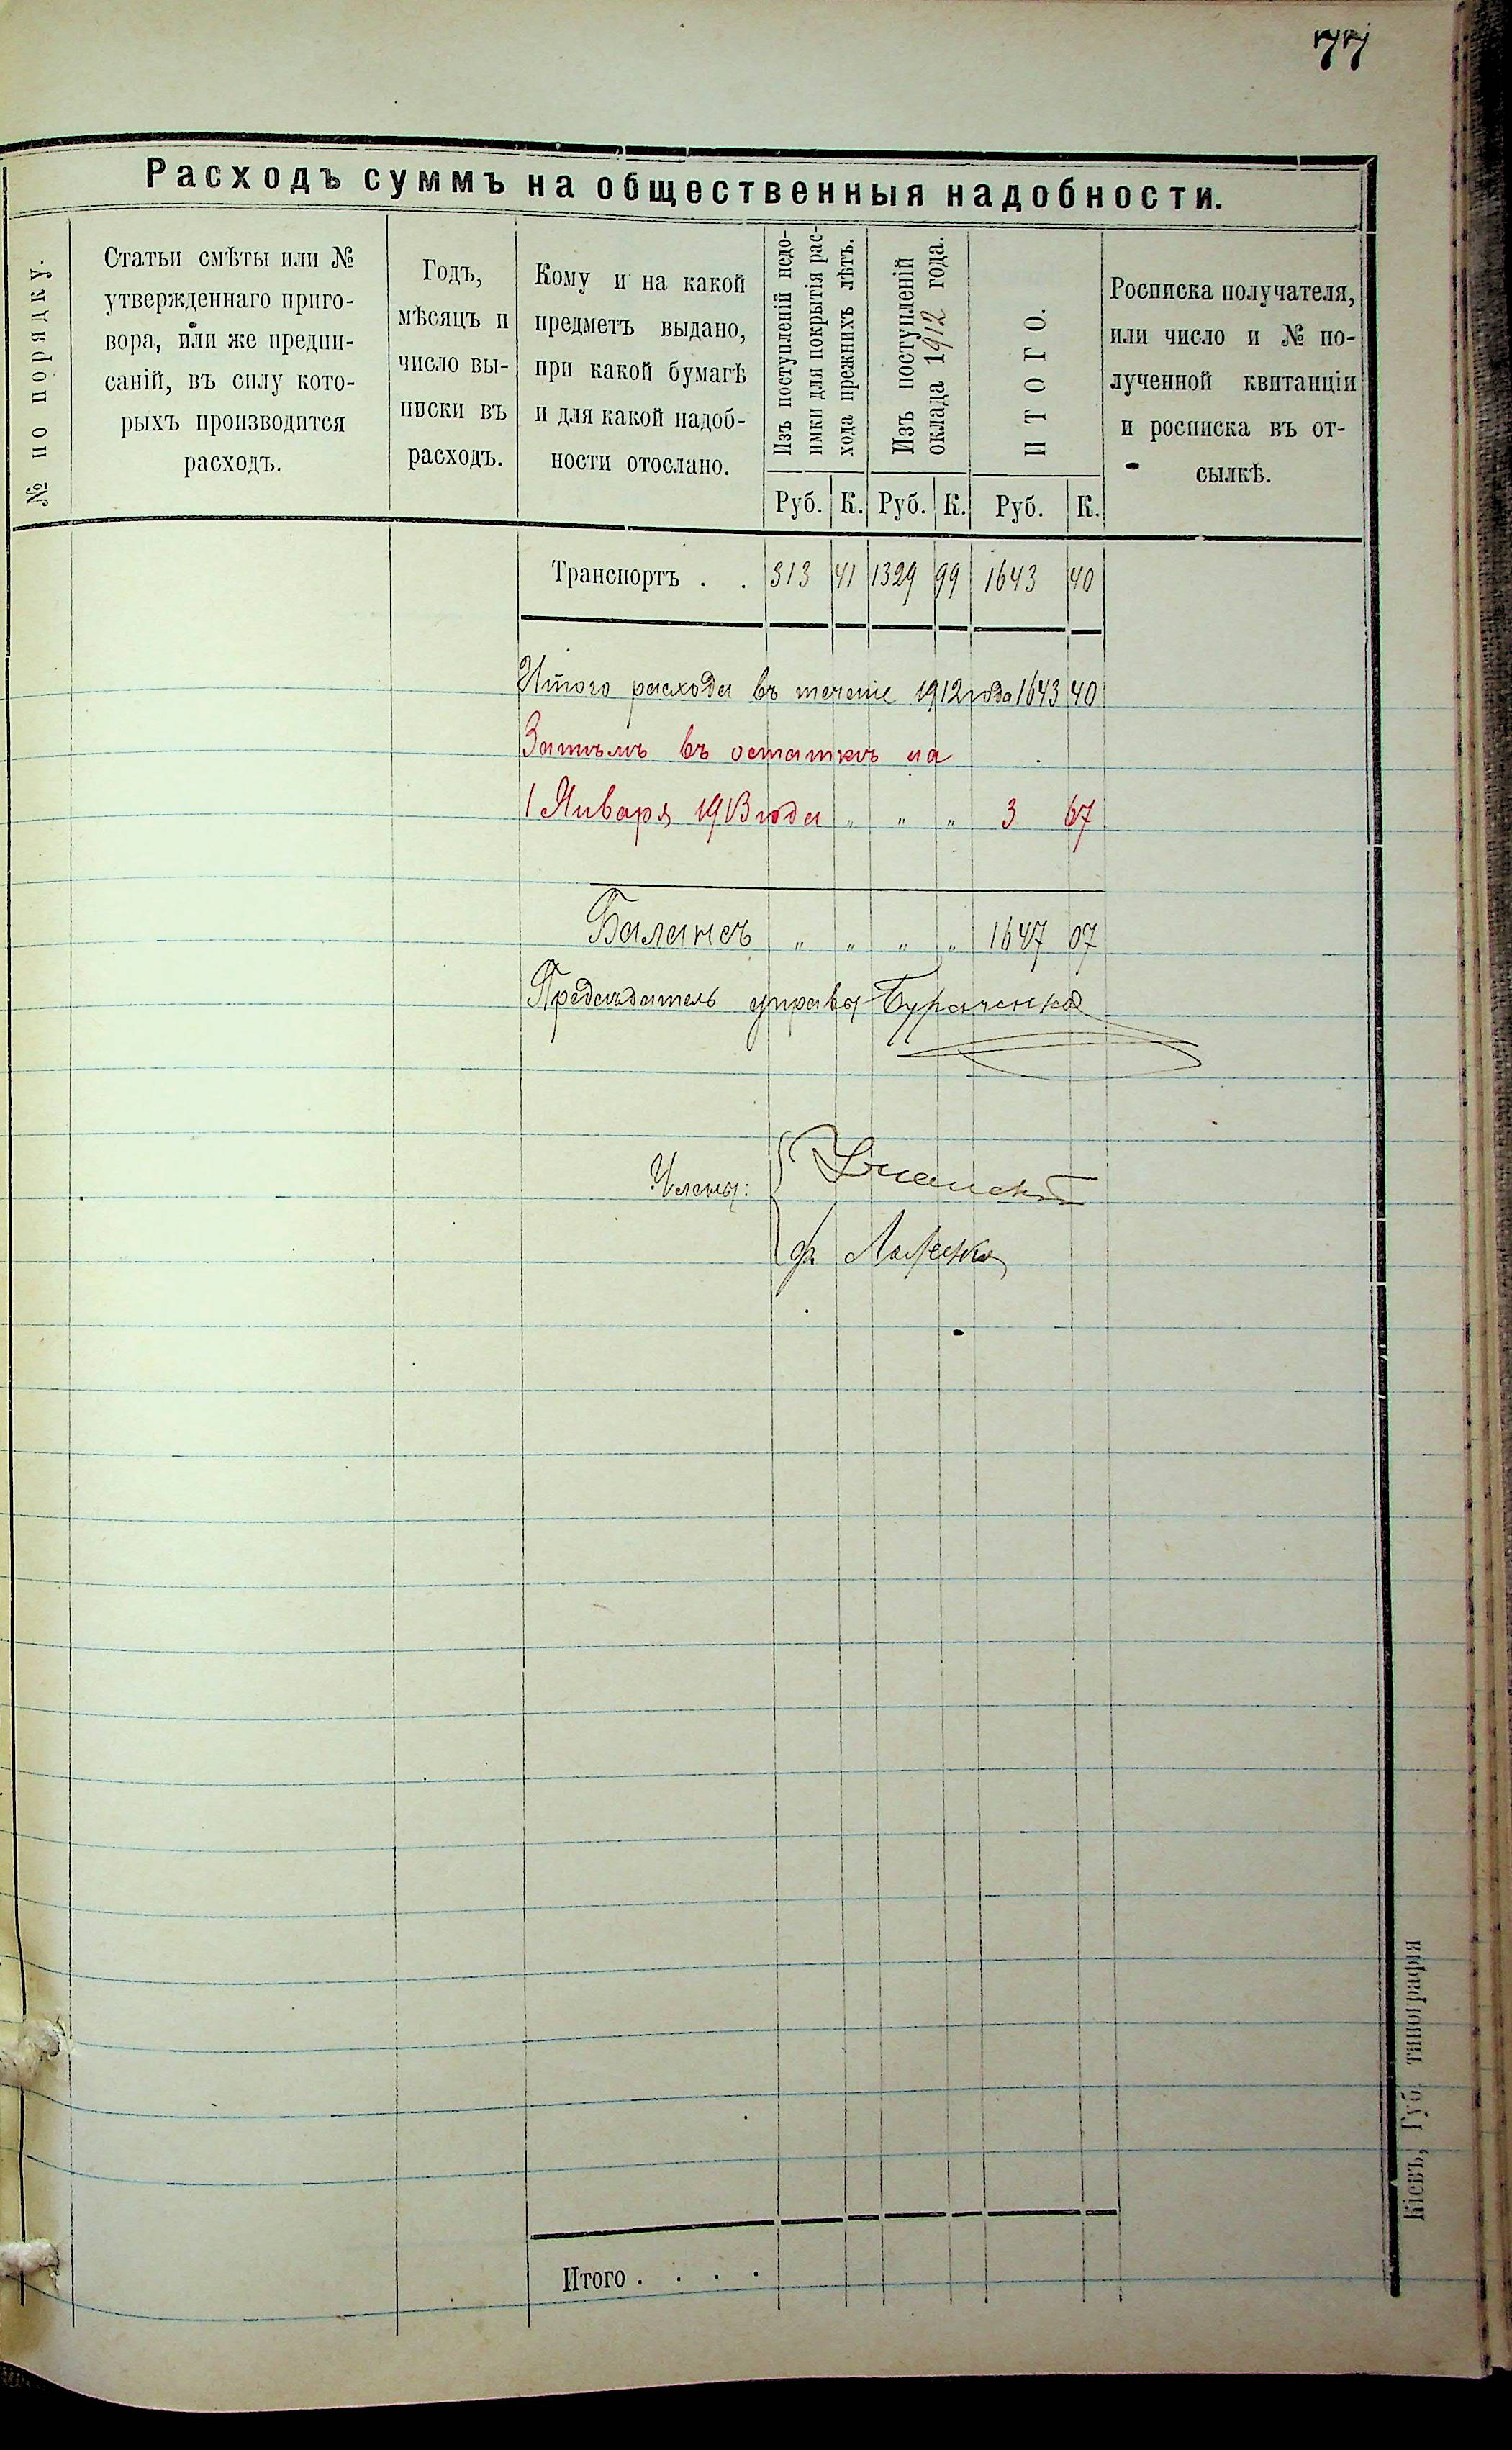 77
Расходъ суммъ на общественныя надобности.
№ по порядку.
Статьи смѣты или №
утвержденнаго приго-
вора, или же предпи-
саній, въ силу кото-
рыхъ производится
расходъ.
Годъ,
мѣсяцъ и
число вы-
писки въ
расходъ.
Кому и на какой
предметъ выдано,
при какой бумагѣ
и для какой надоб-
ности отослано.
Изъ поступленій недо-
имки для покрытія рас-
хода прежнихъ лѣтъ.
Изъ поступленій
оклада 1912 года.
ИТОГО.
Росписка получателя,
или число и № по-
лученной квитанціи
и росписка въ от-
сылкѣ.
Руб. К. Руб. К. Руб. К.
Транспортъ . . 313 41 1329 99 1643 40
Итого расхода въ теченіе 1912 года 1643 40
Затѣмъ въ остаткѣ на
1 Января 1913 года " " " 3 67
Балансъ " " " " 1647 07
Предсѣдатель управы Бураченко
Члены:
Итого . . . .
Кіевъ, Губ. типографія